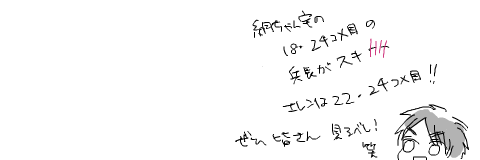 絹ちゃん宅の
18・24コメ目の
兵長がスキHH
エレンは22・24コメ目!!
ぜひ皆さん見るべし!
笑